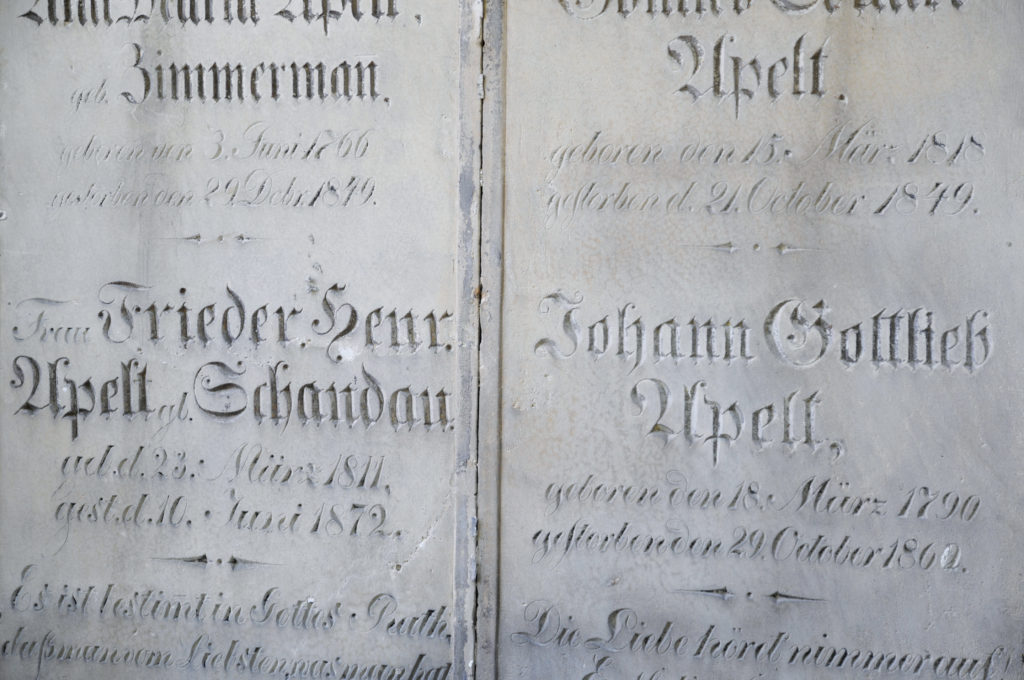 Apelt,
geb. Zimmerman.
geboren den 3. Juni 1766
gestorben den 29. Debr. 1849.
Frau Frieder. Henr.
Apelt gb. Schandau.
geb. d. 23. März 1811,
gest. d. 10. Juni 1872.
Es ist bestim̄t in Gottes Rath,
daß man vom Liebsten, was man hat
Apelt.
geboren den 15. März 1818
gestorben d. 21. October 1849.
Johann Gottlieb
Apelt,
geboren den 18. März 1790
gestorben den 29. October 1860.
Die Liebe hört nimmer auf!